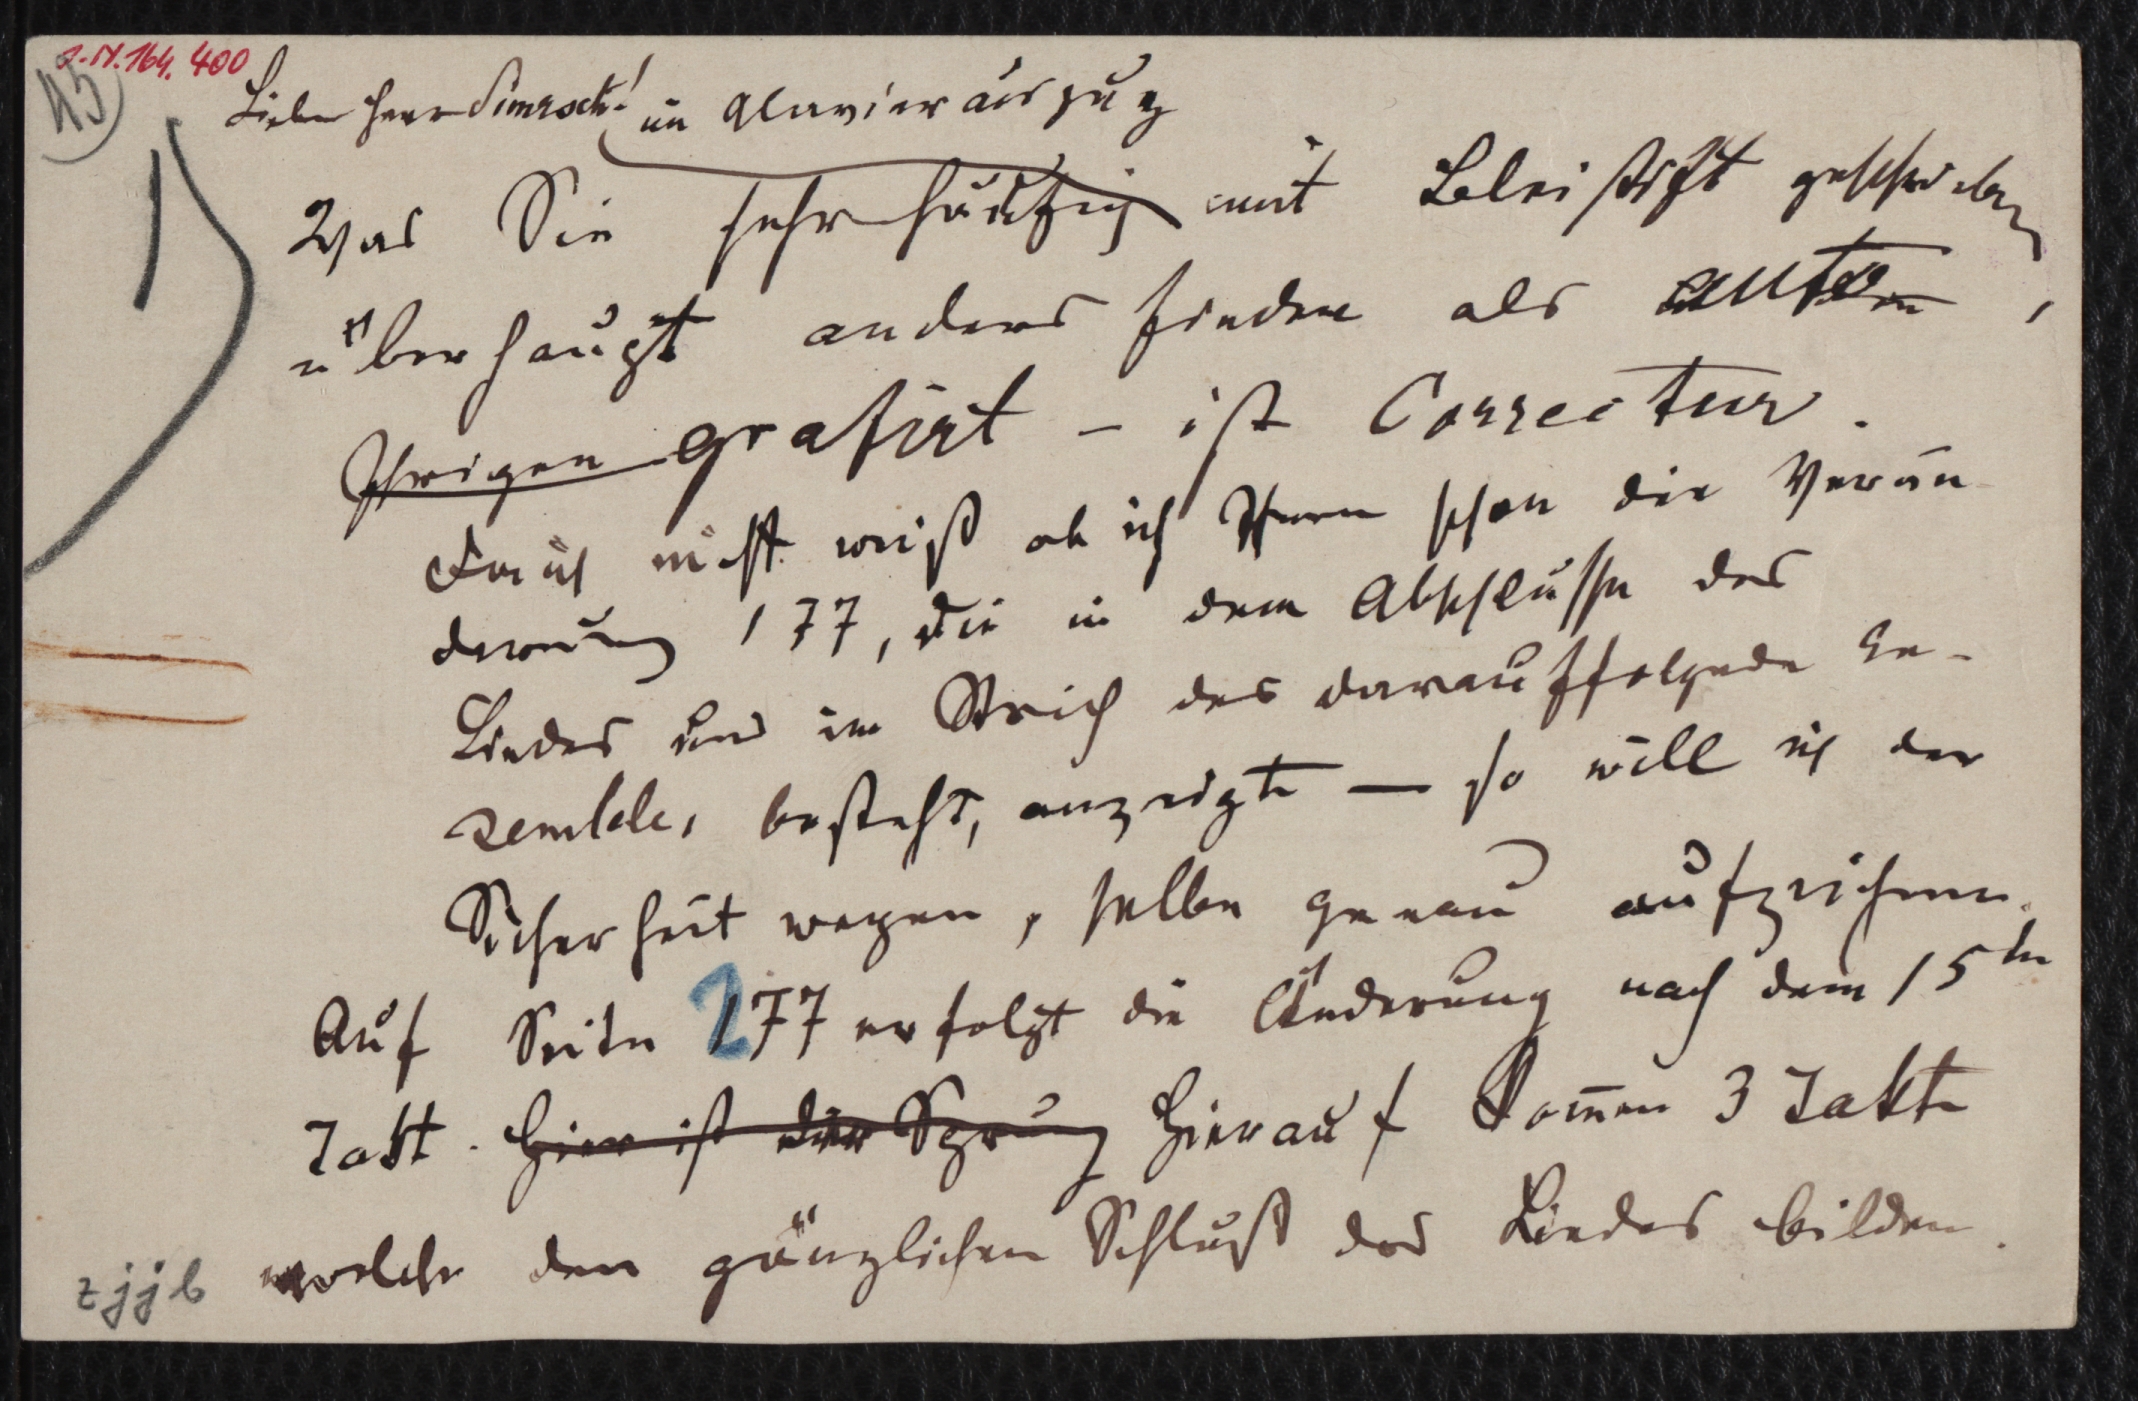 I. N. 164. 400
45
Lieber Herr Simrock! im Clavierauszug
Was Sie sehr häufig mit Bleistift geschrieben
überhaupt anders finden als
Ihrigen grafirt – ist Correctur.
Da ich nicht weiß ob ich Ihnen schon die Verän-
derung 177, die in dem Abschlusse des
Liedes und im Strich des darauffolgende En-
semble, besteht, anzeigte — so will ich der
Sicherheit wegen, selbe genau aufzeichnen.
Auf Seite 277 erfolgt die Änderung nach dem 15ten
Takt. Hier ist der Sprung Hierauf kom̅en 3 Takte
welche den gänzlichen Schluß des Liedes bilden.
zjjb